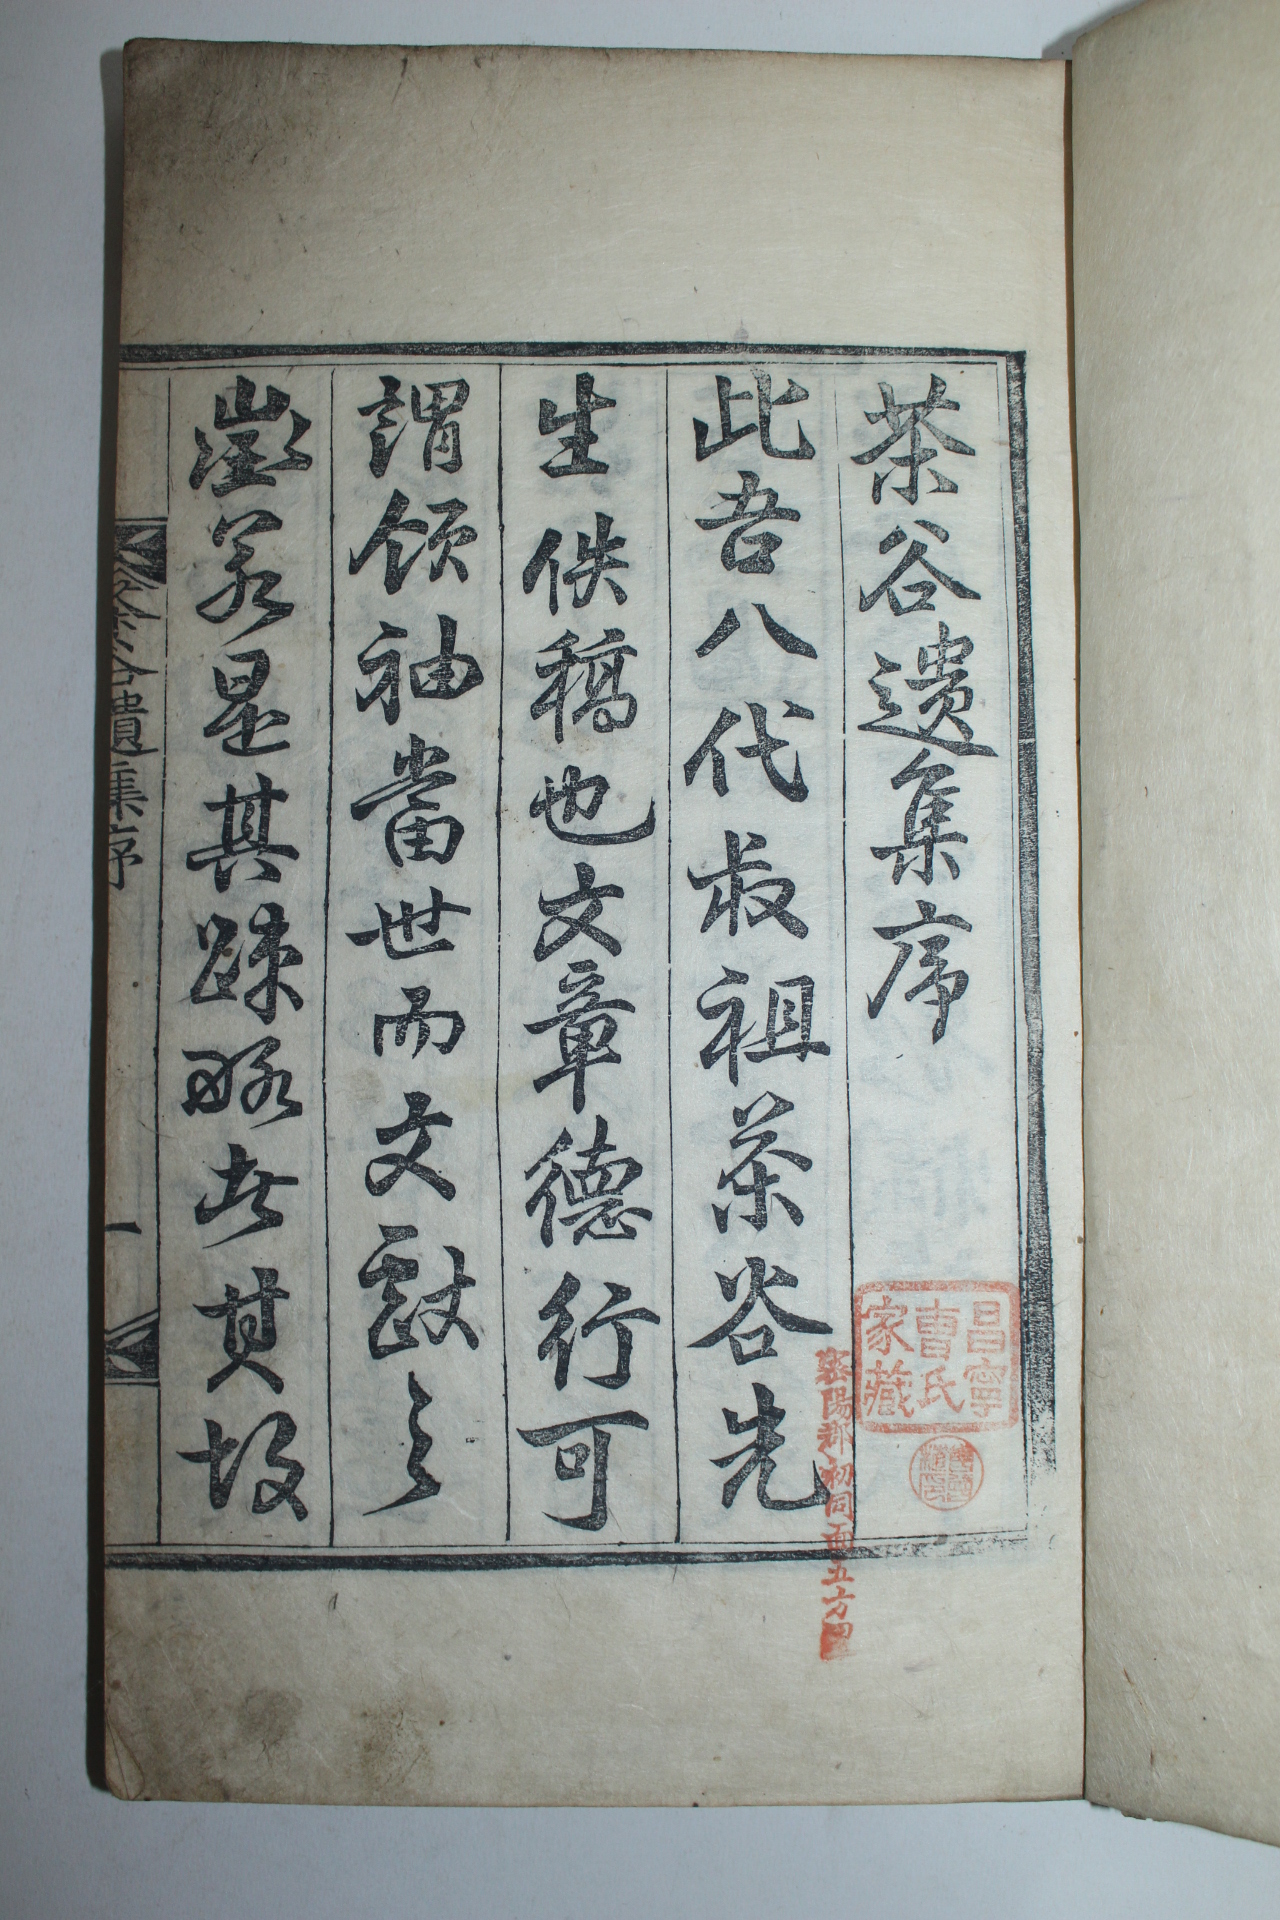 茶谷遺集序
此吾八代叔祖茶谷先
生佚稿也文章德行可
謂領袖當世而文獻之
徵若是其踈略者其故
茶谷遺集序
一
昌寧
曹氏
家藏
密陽郡初同面五方里